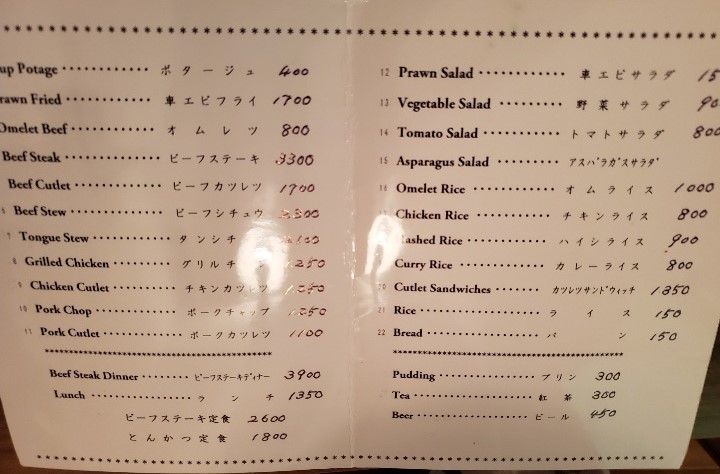 Potage ポタージュ 400
Fried 車エビフライ 1700
Omelet Beef オムレツ 800
Beef Steak ビーフステーキ 3300
Beef Cutlet ビーフカツレツ 1900
6 Beef Stew ビーフシチュウ
7 Tongue Stew タンシチ
8 Grilled Chicken グリルチ ン 1250
9 Chicken Cutlet チキンカツレツ 1250
10 Pork Chop ポークチャップ 1250
11 Pork Cutlet ポークカツレツ 1100
Beef Steak Dinner ビーフステーキディナー 3900
Lunch ランチ 1350
ビーフステーキ定食 2600
とんかつ定食 1800
12 Prawn Salad 車エビサラダ 15
13 Vegetable Salad 野菜サラダ 90
14 Tomato Salad トマトサラダ 800
15 Asparagus Salad アスパラガスサラダ
16 Omelet Rice オムライス 1000
Chicken Rice チキンライス 800
Rice ハイシライス 900
Curry Rice カレーライス 800
20 Cutlet Sandwiches カツレツサンドウィッチ 1350
21 Rice ライス 150
22 Bread パン 150
Pudding プリン 300
Tea 紅茶 300
Beer ビール 450